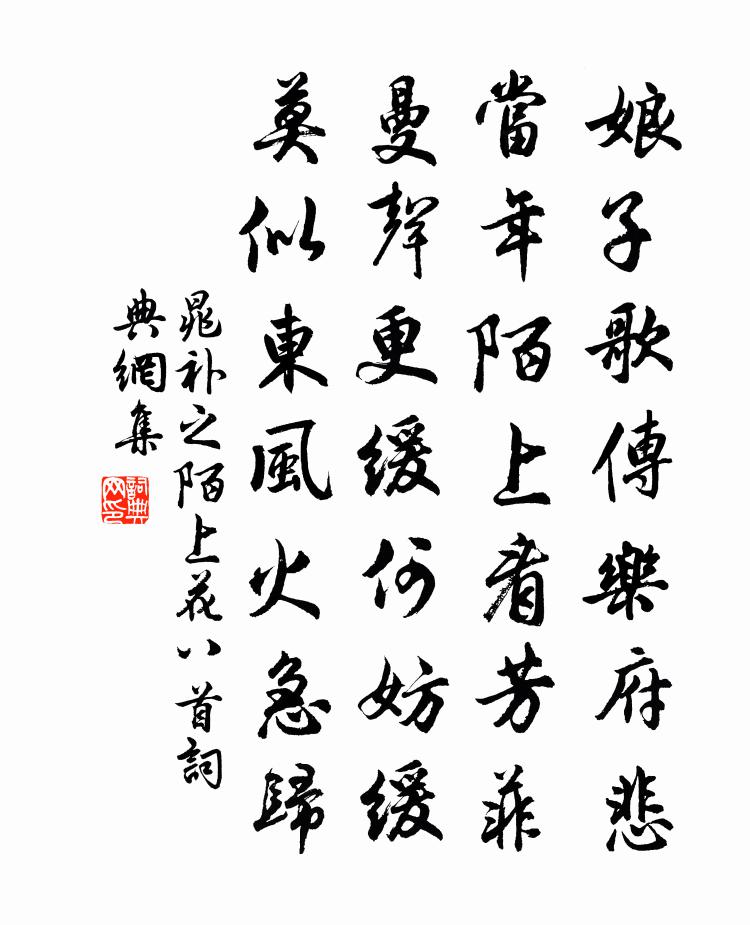 娘子歌傳樂府悲
當年陌上看芳菲
曼聲更緩何妨緩
莫似東風火急歸
晁补之陌上花八首詞
典網集
詞典
网印